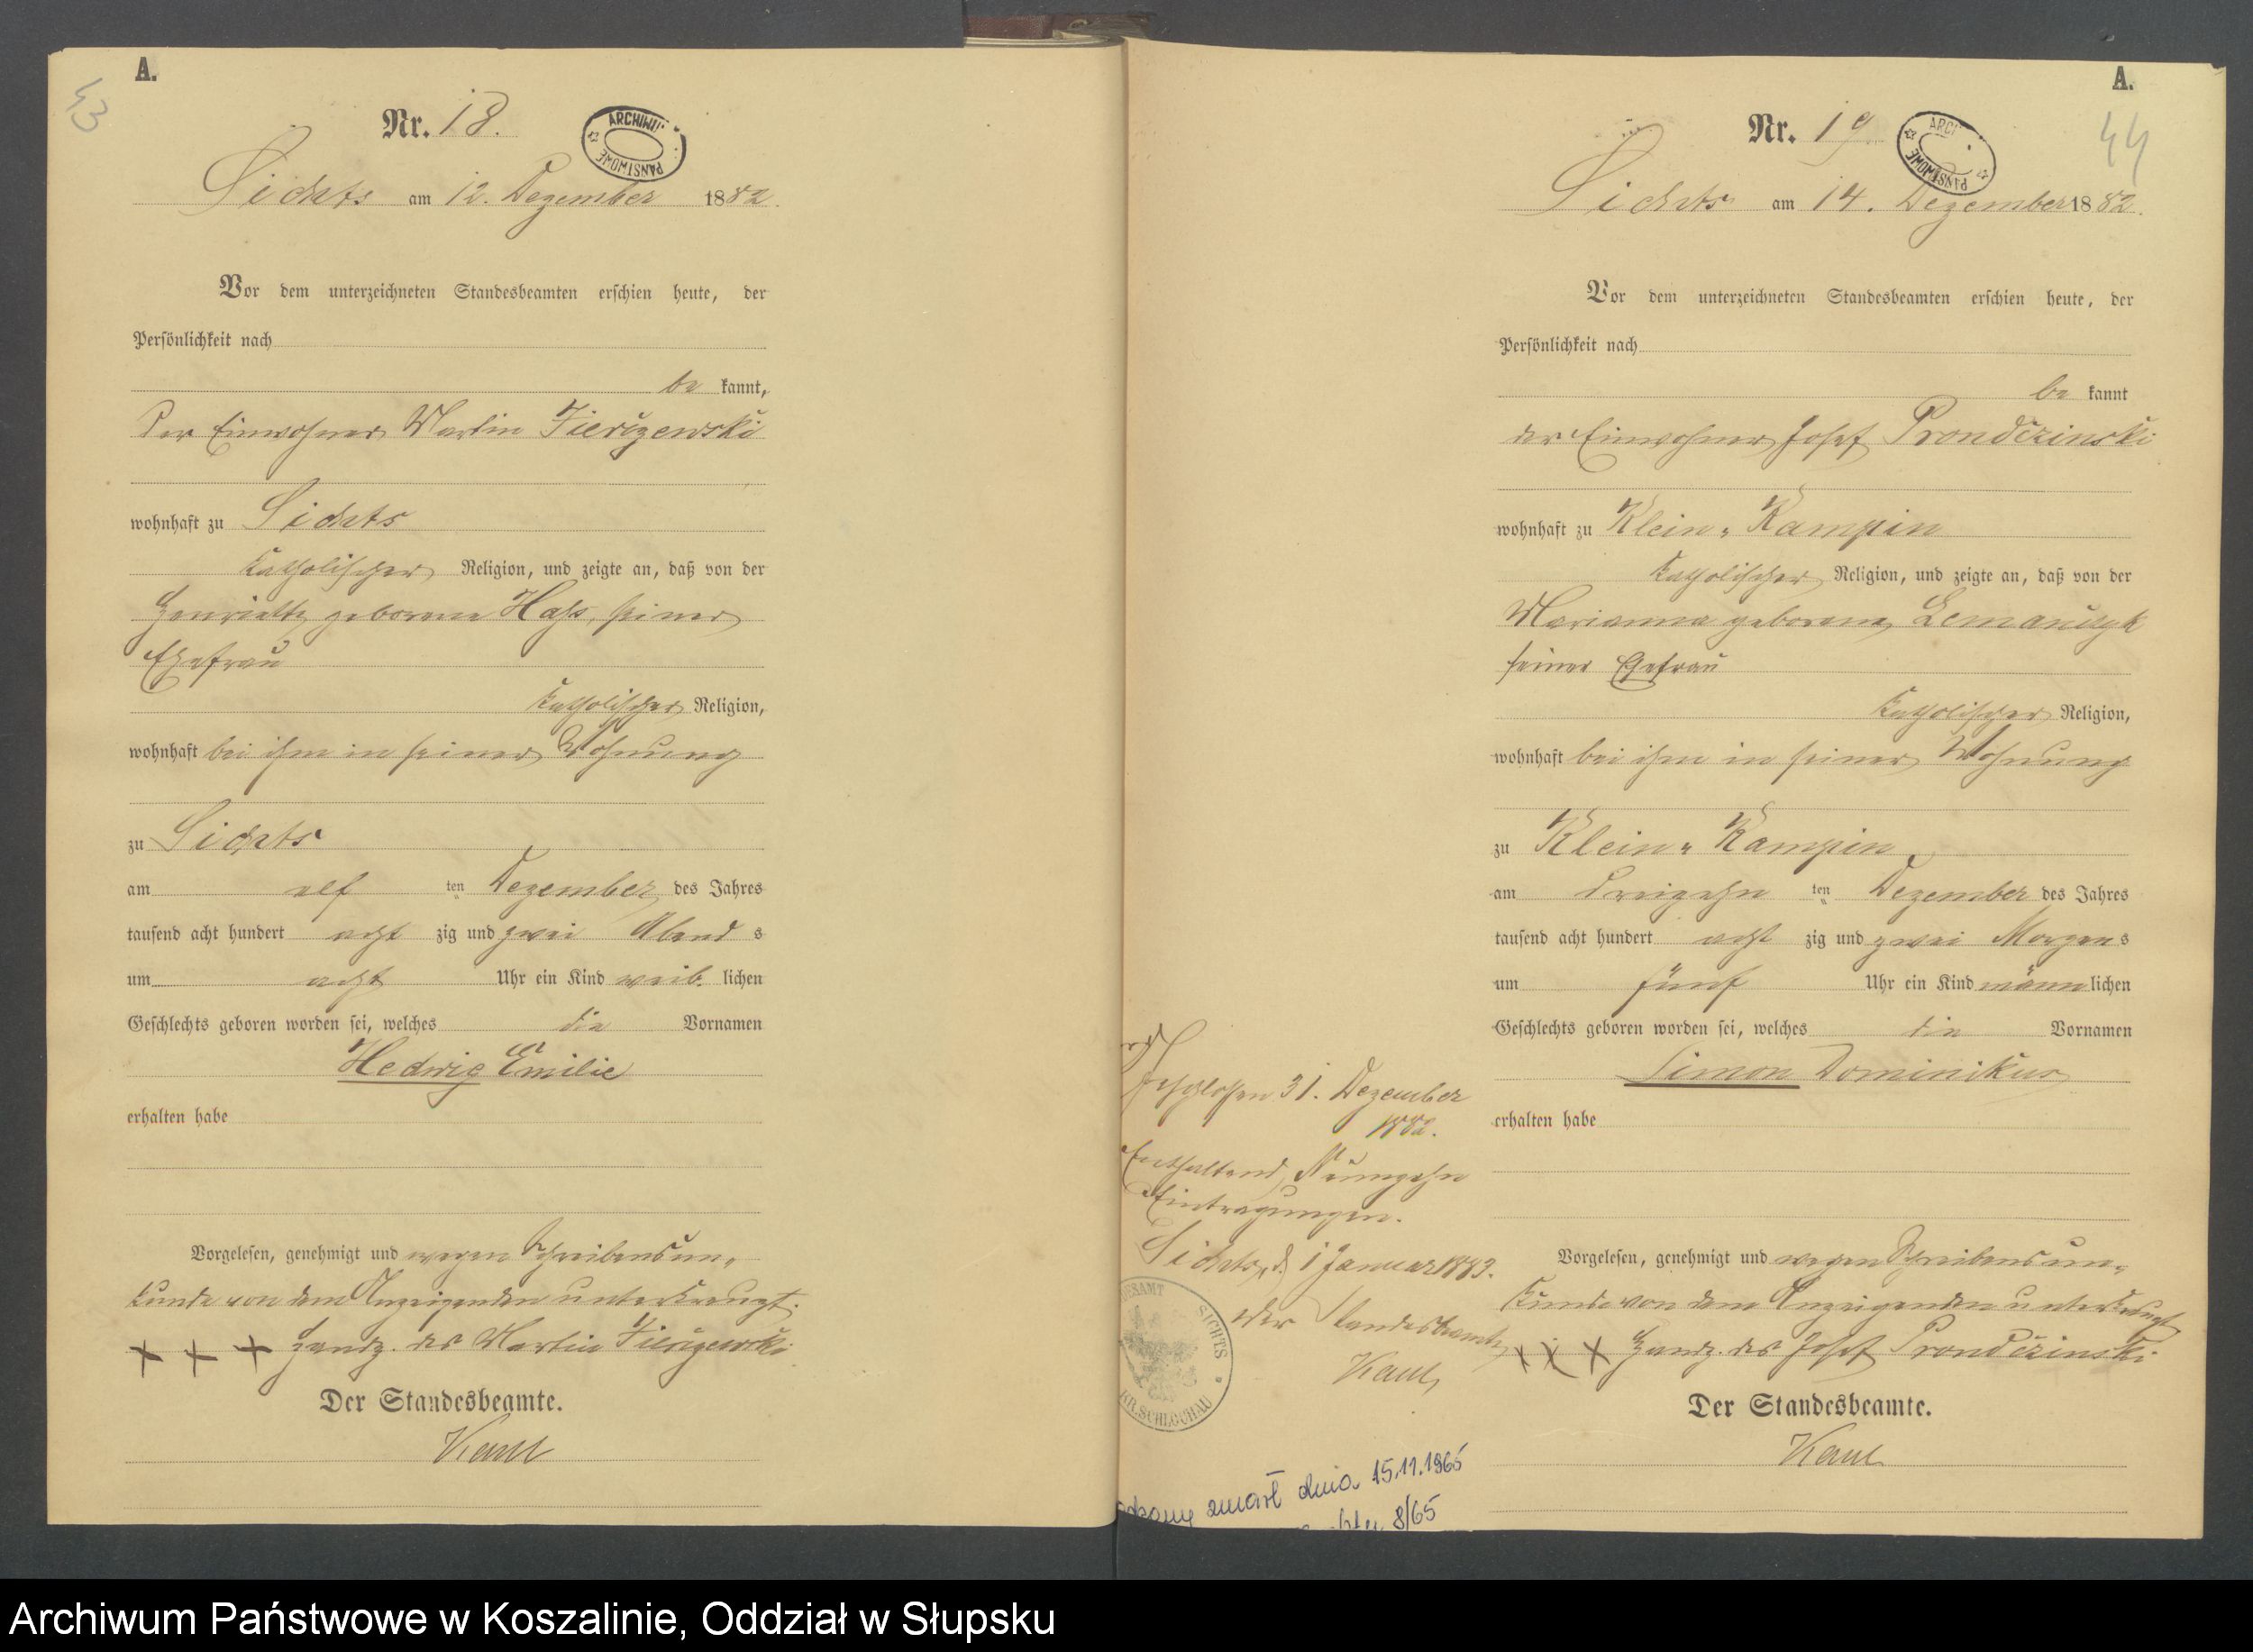 A.
43
Nr. 18.
ARCHIWU
PAŃSTWOWE
Sichts am 12. Dezember 1882.
Vor dem unterzeichneten Standesbeamten erschien heute, der
Persönlichkeit nach
be kannt,
Der Einwohner Martin Fierizewski
wohnhaft zu Sichts
katholischer Religion, und zeigte an, daß von der
Henriette geborene Hass, seiner
Ehefrau
katholischer Religion,
wohnhaft bei ihm in seiner Wohnung
zu Sichts
am elf ten Dezember des Jahres
tausend acht hundert acht zig und zwei Abend s
um acht Uhr ein Kind weib. lichen
Geschlechts geboren worden sei, welches die Vornamen
Hedwig Emilie
erhalten habe
Vorgelesen, genehmigt und wegen Schreibensun-
kunde von dem Anzeigenden unterkreuzt.
+ + + Handz. des Martin Fierizewski
Der Standesbeamte.
Kaul
A.
44
Nr. 19
ARCHI
PAŃSTWOWE
Sichts am 14. Dezember 1882.
Vor dem unterzeichneten Standesbeamten erschien heute, der
Persönlichkeit nach
be kannt
der Einwohner Josef Prondczinski
wohnhaft zu Klein-Kampin
katholischer Religion, und zeigte an, daß von der
Marianna geborene Lemanczyk
seiner Ehefrau
katholischer Religion,
wohnhaft bei ihm in seiner Wohnung
zu Klein-Kampin
am dreizehn ten Dezember des Jahres
tausend acht hundert acht zig und zwei Morgens
um fünf Uhr ein Kind männ lichen
Geschlechts geboren worden sei, welches die Vornamen
Simon Dominikus
erhalten habe
Vorgelesen, genehmigt und wegen Schreibensun-
kunde von dem Anzeigenden unterkreuzt
+ + + Handz. des Josef Prondczinski
Der Standesbeamte.
Kaul
Geschlossen 31. Dezember
1882.
Enthaltend Neunzehn
Eintragungen.
Sichts, d. 1 Januar 1883.
Der Standesbeamte
Kaul
SICHTS
KR. SCHLOCHAU
zmarł dnia 15.11.1965
8/65
Archiwum Państwowe w Koszalinie, Oddział w Słupsku